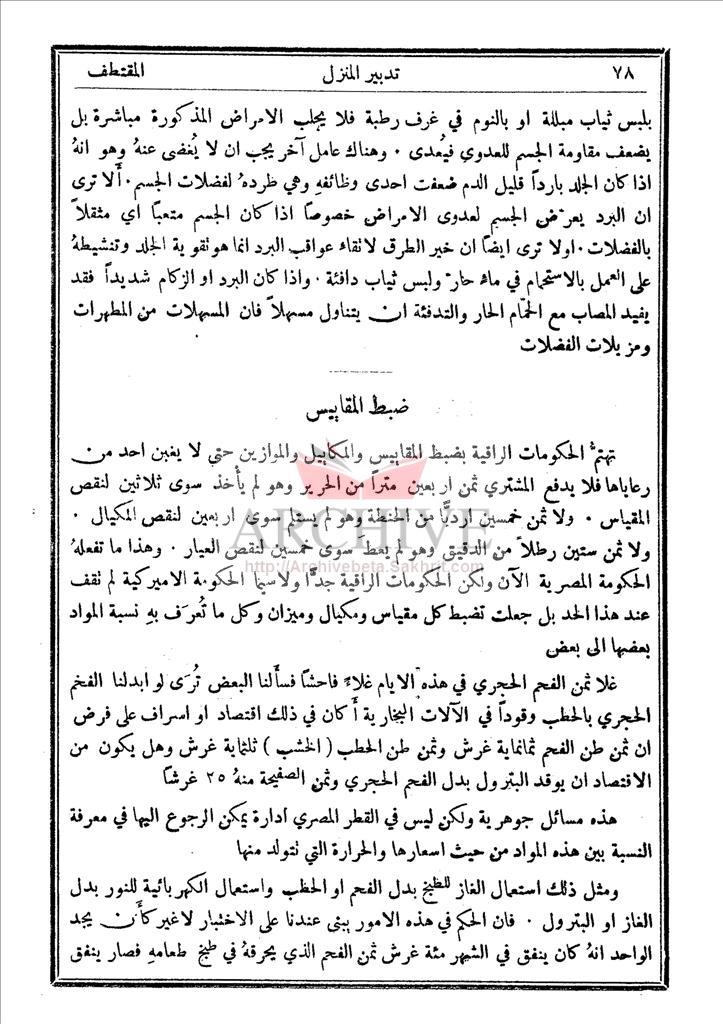 ٧٨ تدبير المنزل المقتطف
بلبس ثياب مبللة او بالنوم في غرف رطبة فلا يجلب الامراض المذكورة مباشرة بل
يضعف مقاومة الجسم للعدوي فيُعدى . وهناك عامل آخر يجب ان لا يُغضى عنهُ وهو انهُ
اذا كان الجلد بارداً قليل الدم ضعفت احدى وظائفهِ وهي طردهُ لفضلات الجسم . ألا ترى
ان البرد يعرّض الجسم لعدوى الامراض خصوصاً اذا كان الجسم متعبًا اي مثقلاً
بالفضلات . اولا ترى ايضاً ان خير الطرق لاتقاء عواقب البرد انما هو تقوية الجلد وتنشيطهُ
على العمل بالاستحمام في ماءٍ حارّ ولبس ثياب دافئة . واذا كان البرد او الزكام شديداً فقد
يفيد المصاب مع الحمّام الحار والتدفئة ان يتناول مسهلاً فان المسهلات من المطهرات
ومزيلات الفضلات
ضبط المقاييس
تهتمُّ الحكومات الراقية بضبط المقاييس والمكاييل والموازين حتى لا يغبن احد من
رعاياها فلا يدفع المشتري ثمن اربعين متراً من الحرير وهو لم يأخذ سوى ثلاثين لنقص
المقياس . ولا ثمن خمسين اردبًّا من الحنطة وهو لم يستلم سوى اربعين لنقص المكيال .
ولا ثمن ستين رطلاً من الدقيق وهو لم يعطَ سوى خمسين لنقص العيار . وهذا ما تفعلهُ
الحكومة المصرية الآن ولكن الحكومات الراقية جدًّا ولاسيما الحكومة الاميركية لم تقف
عند هذا الحد بل جعلت تضبط كل مقياس ومكيال وميزان وكل ما تُعرَف بهِ نسبة المواد
بعضها الى بعض
غلا ثمن الفحم الحجري في هذه الايام غلاءً فاحشاً فسألنا البعض تُرَى لو ابدلنا الفحم
الحجري بالحطب وقوداً في الآلات البخارية أكان في ذلك اقتصاد او اسراف على فرض
ان ثمن طن الفحم ثمانماية غرش وثمن طن الحطب ( الخشب ) ثلثماية غرش وهل يكون من
الاقتصاد ان يوقد البترول بدل الفحم الحجري وثمن الصفيحة منهُ ٢٥ غرشاً
هذه مسائل جوهرية ولكن ليس في القطر المصري ادارة يمكن الرجوع اليها في معرفة
النسبة بين هذه المواد من حيث اسعارها والحرارة التي تتولد منها
ومثل ذلك استعمال الغاز للطبخ بدل الفحم او الحطب واستعمال الكهربائية للنور بدل
الغاز او البترول . فان الحكم في هذه الامور يبنى عندنا على الاختبار لا غير كأن يجد
الواحد انهُ كان ينفق في الشهر مئة غرش ثمن الفحم الذي يحرقهُ في طبخ طعامهِ فصار ينفق
ARCHIVE
http://Archivebeta.Sakhrit.com